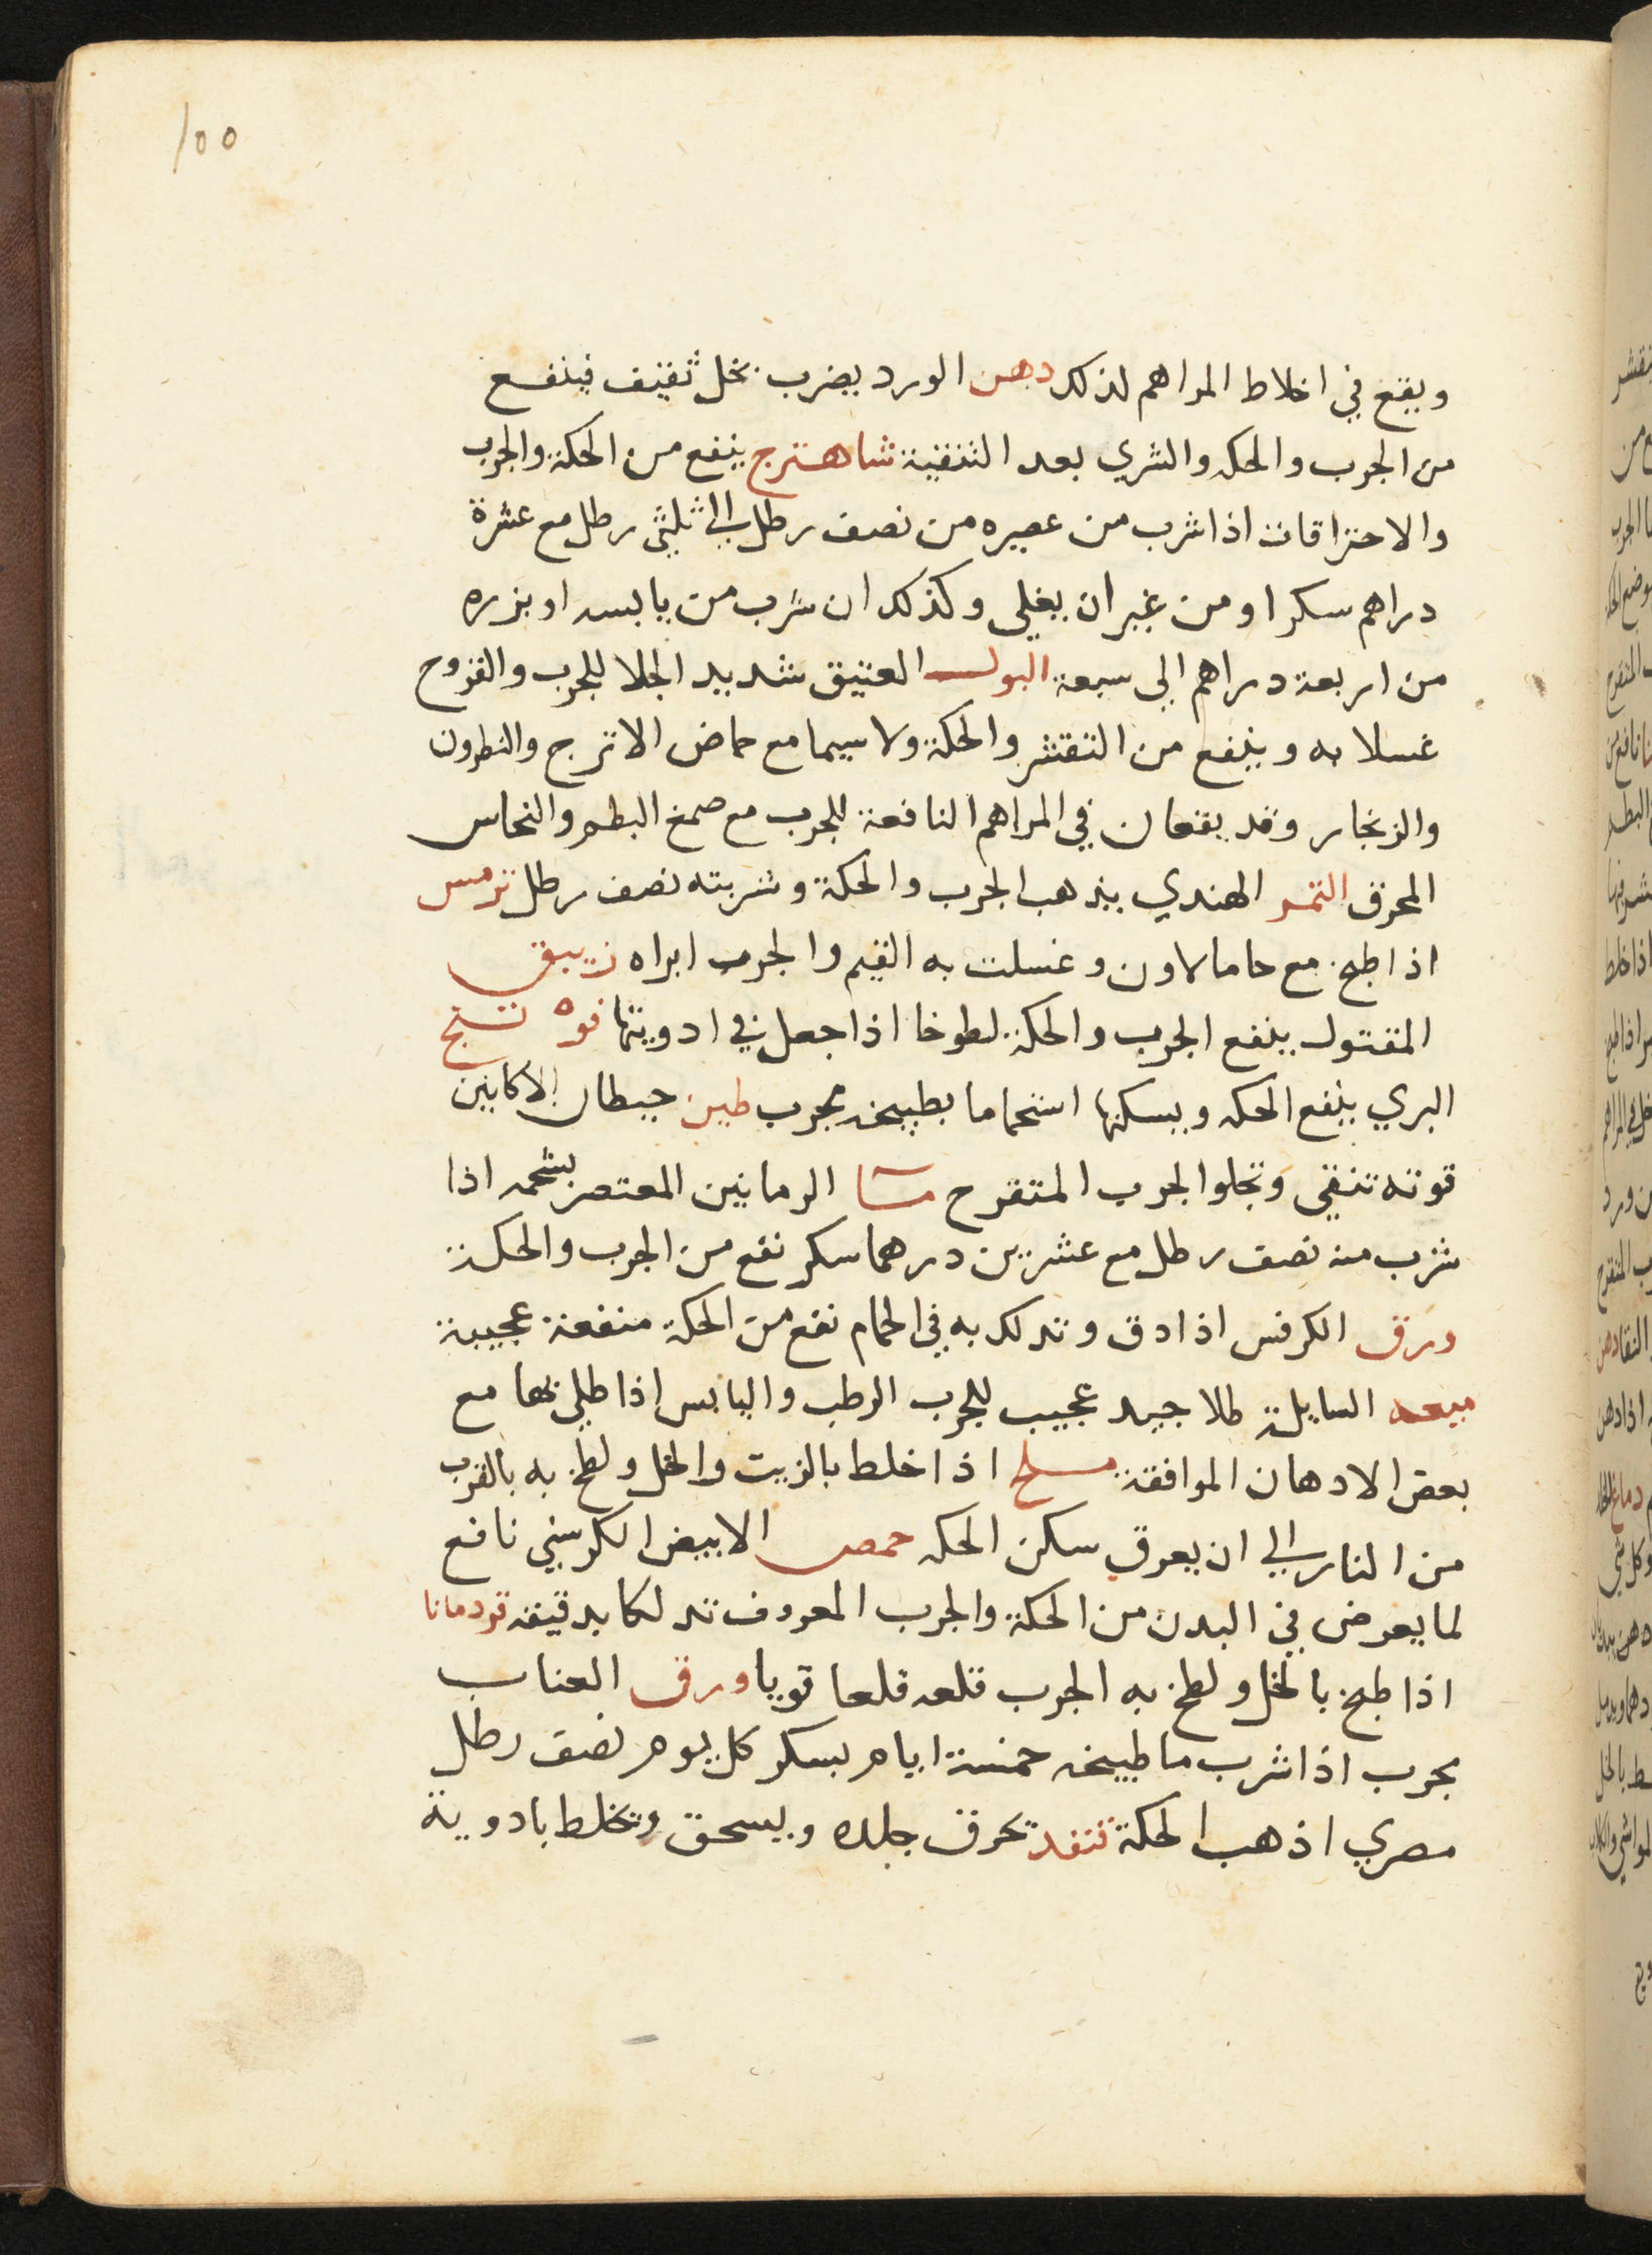 ١٥٥
ويقع في اخلاط المراهم لذلك دهن الورد يضرب بخل ثقيف فينفع
من الجرب والحكه والشري بعد التنقية شاهترج ينفع من الحكة والجرب
والاحتراقات اذا شرب من عصيره من نصف رطل الي ثلثي رطل مع عشرة
دراهم سكر او من غير ان يغلي وكذلك ان شرب من يابسه او بزره
من اربعة دراهم الي سبعة البول العتيق شديد الجلا للجرب والقروح
غسلا به وينفع من التقشر والحكة ولا سيما مع حماض الاترج والنطرون
والزنجار وقد يقعان في المراهم النافعة للجرب مع صمغ البطم والنحاس
المحرق التمر الهندي يذهب الجرب والحكة وشربته نصف رطل ترمس
اذا طبخ مع حامالاون وغسلت به الغنم والجرب ابراه زيبق
المقتول ينفع الجرب والحكة لطوخا اذا جعل في ادويتها فوه نتج
البري ينفع الحكه ويسكنها استحماما بطبيخه مجرب طين حيطان الاكانين
قوته تنقي وتجلوا الجرب المتقرح مسا الرمانين المعتصر بشحمه اذا
شرب منه نصف رطل مع عشرين درهما سكر نفع من الجرب والحكة
ورق الكرفس اذا دق وتدلك به في الحمام نفع من الحكة منفعة عجيبة
ميعه السايلة طلا جيد عجيب للجرب الرطب واليابس اذا طلي بها مع
بعض الادهان الموافقة ملح اذا خلط بالزيت والخل ولطخ به بالقرب
من النار الي ان يعرق سكن الحكه حمص الابيض الكرسني نافع
لما يعرض في البدن من الحكة والجرب المعروف تدلكا بدقيقه قودمانا
اذا طبخ بالخل ولطخ به الجرب قلعه قلعا قويا ورق العناب
مجرب اذا شرب ما طبيخه خمسة ايام بسكر كل يوم نصف رطل
مصري اذهب الحكة قنفد تحرق جلده ويسحق وتخلط بادوية